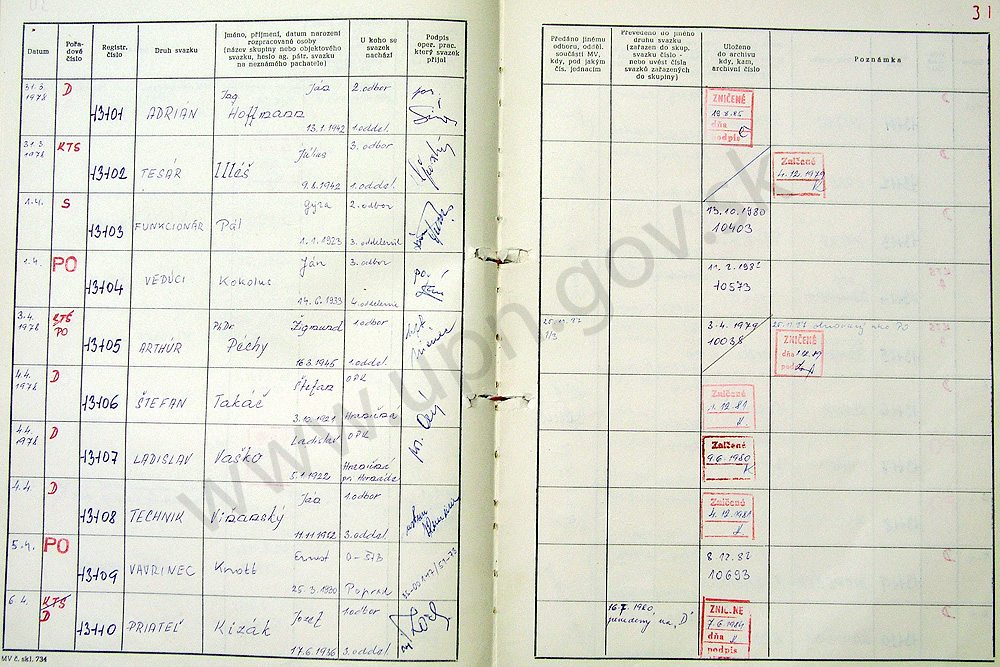 31
Datum
Pořa-
dové
číslo
Registr.
číslo
Druh svazku
jméno, příjmení, datum narození
rozpracované osoby
(název skupiny nebo objektového
svazku, heslo ag. pátr. svazku
na neznámého pachatele)
U koho se
svazek
nachází
Podpis
oper. prac.
který svazek
přijal
Předáno jinému
odboru, odděl.
součásti MV,
kdy, pod jakým
čís. jednacím
Převedeno do jiného
druhu svazku
(zařazen do skup.
svazku číslo -
nebo uvést čísla
svazků zařazených
do skupiny)
Uloženo
do archivu
kdy, kam,
archivní číslo
Poznámka
31.3.
1978
D
13101
ADRIÁN
Ing Ján
Hoffmann
13.1.1942
2.odbor
1.oddel.
por.
ZNIČENÉ
dňa
podpis
31.3.
1978
KTS
13102
TESÁR
Július
Illéš
9.8.1942
3.odbor
1.oddel.
Zničené
4.12.1979
1.4.
S
13103
FUNKCIONÁR
Pál
1.1.1923
2.odbor
3.oddelenie
13.10.1980
10403
1.4.
PO
13104
VEDÚCI
Ján
Kokolus
14.6.1933
3.odbor
4.oddelenie
10573
3.4.
1978
KTS
PO
13105
ARTHÚR
PhDr Žigmund
Péchy
16.3.1945
1.odbor
1.oddel.
3.4.1979
10038
ZNIČENÉ
dňa
4.4.
1978
D
13106
ŠTEFAN
Štefan
Takáč
3.10.1921
OPK
Zničené
1.12.81
4.4.
1978
D
13107
LADISLAV
Ladislav
Vaško
5.1.1922
OPK
Zničené
9.6.1980
4.4.
D
13108
TECHNIK
Ján
11.11.1952
1.odbor
3.oddel.
Zničené
4.12.1981
5.4.
PO
13109
VAVRINEC
Ernest
Knott
25.3.1930
Poprad
8.12.82
10693
6.4.
KTS
D
13110
PRIATEĽ
Jozef
Kizák
17.6.1936
1.odbor
3.oddel.
16.7.1980
na "D"
7.6.1984
dňa
MV č. skl. 734
www.upn.gov.sk